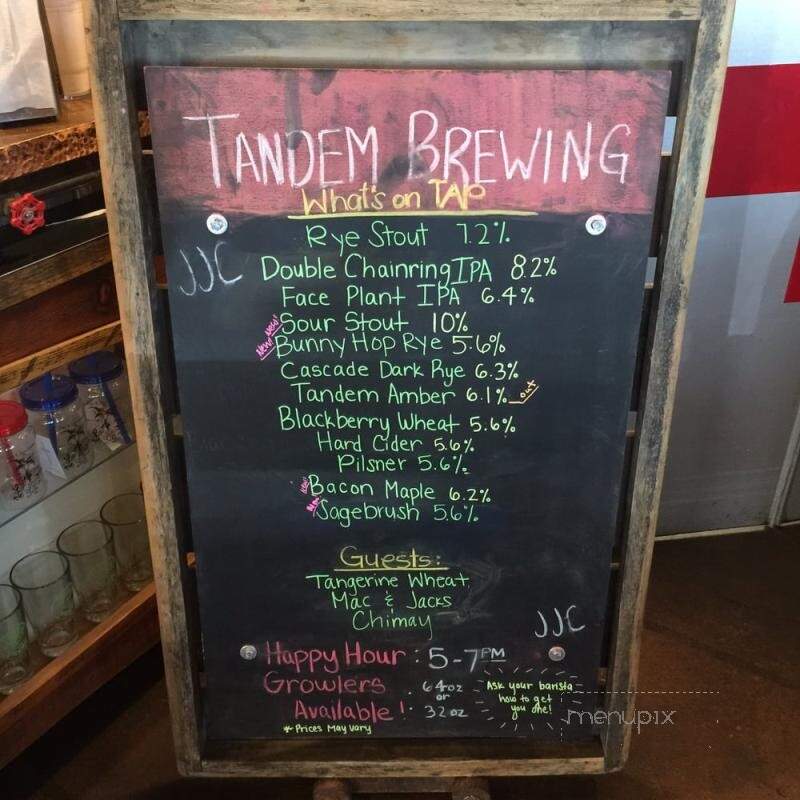 TANDEM BREWING
What's on TAP
JJC
Rye Stout 7.2%
Double Chainring IPA 8.2%
Face Plant IPA 6.4%
New! Sour Stout 10%
New! Bunny Hop Rye 5.6%
Cascade Dark Rye 6.3%
Tandem Amber 6.1% out
Blackberry Wheat 5.6%
Hard Cider 5.6%
Pilsner 5.6%
New! Bacon Maple 6.2%
New! Sagebrush 5.6%
Guests:
Tangerine Wheat
Mac & Jacks
Chimay
JJC
Happy Hour: 5-7PM
Growlers
Available!
64oz
or
32oz
* Prices May Vary
Ask your barista
how to get
you one!
menupix